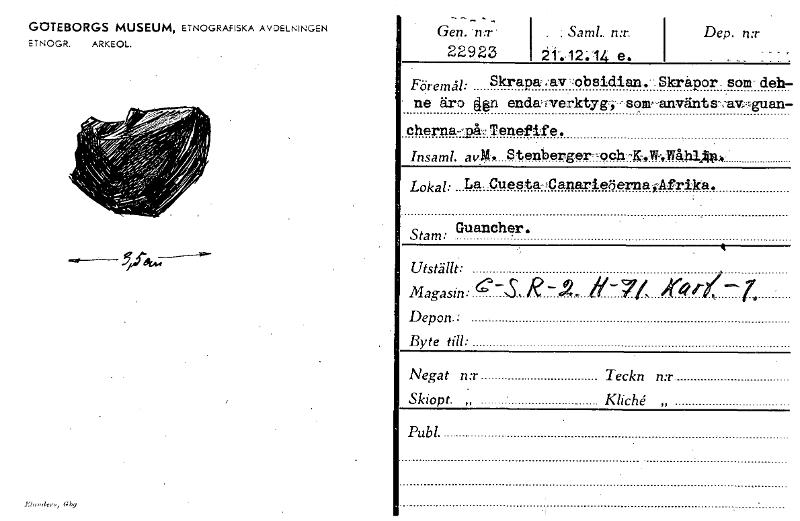 GÖTEBORGS MUSEUM, ETNOGRAFISKA AVDELNINGEN
ETNOGR. ARKEOL.
3,5 cm
Elanders, Gbg
Gen. n:r Saml. n:r Dep. n:r
22923 21.12.14 e.
Föremål: Skrapa av obsidian. Skrapor som den-
ne äro den enda verktyg, som använts av guan-
cherna på Tenefife.
Insaml. av M. Stenberger och K.W.Wåhlin.
Lokal: La Cuesta Canarieöerna,Afrika.
Stam: Guancher.
Utställt:
Magasin: G-S.R-2. H-71. Kart.-1.
Depon.:
Byte till:
Negat n:r Teckn n:r
Skiopt. „ Kliché „
Publ.